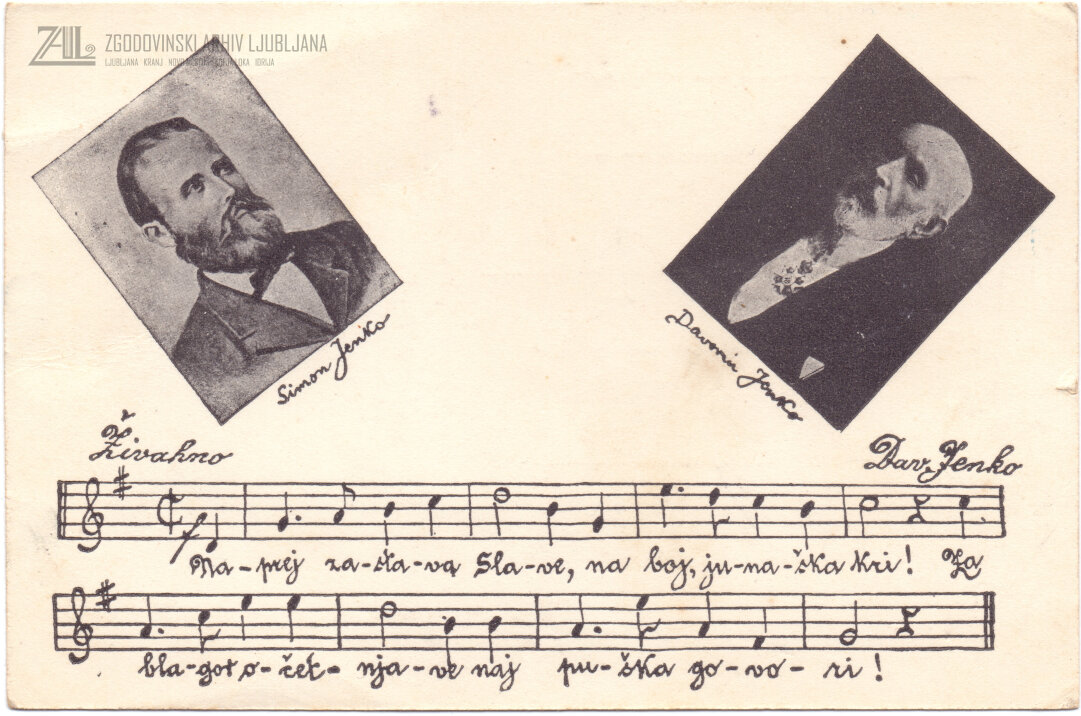 ZAL ZGODOVINSKI ARHIV LJUBLJANA
LJUBLJANA KRANJ NOVO MESTO ŠKOFJA LOKA IDRIJA
Simon Jenko
Davorin Jenko
Živahno
Dav. Jenko
f
Na-prej za-sta-va Sla-ve, na boj, ju-na-ška kri! Za
bla-gor o-čet-nja-ve naj pu-ška go-vo-ri!